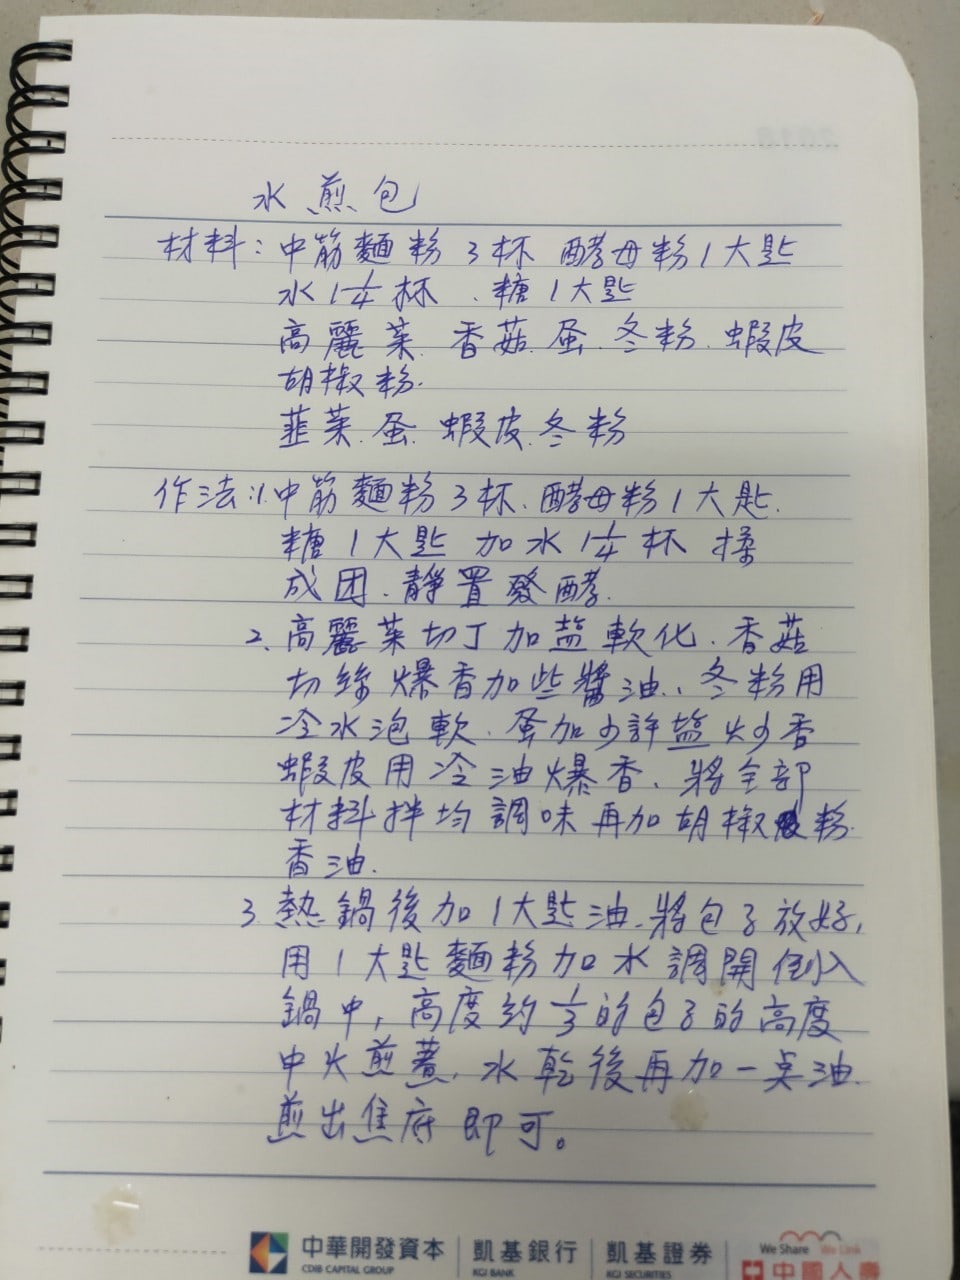 水煎包
材料：中筋麵粉3杯 酵母粉1大匙
水1¼杯、糖1大匙
高麗菜.香菇.蛋.冬粉.蝦皮
胡椒粉.
韮菜.蛋.蝦皮.冬粉
作法：1.中筋麵粉3杯.酵母粉1大匙.
糖1大匙 加水1¼杯 揉
成团.靜置發酵.
2.高麗菜切丁加盐軟化.香菇
切絲爆香加些醬油、冬粉用
冷水泡軟.蛋加少許盐炒香
蝦皮用冷油爆香、將全部
材料拌均調味再加胡椒粉.
香油.
3.熱鍋後加1大匙油.將包子放好,
用1大匙麵粉加水調開倒入
鍋中,高度約⅓的包子的高度
中火煎蓋,水乾後再加一点油.
煎出焦底即可。
中華開發資本 凱基銀行 凱基證券 We Share We Link
CDIB CAPITAL GROUP KGI BANK KGI SECURITIES 中國人壽